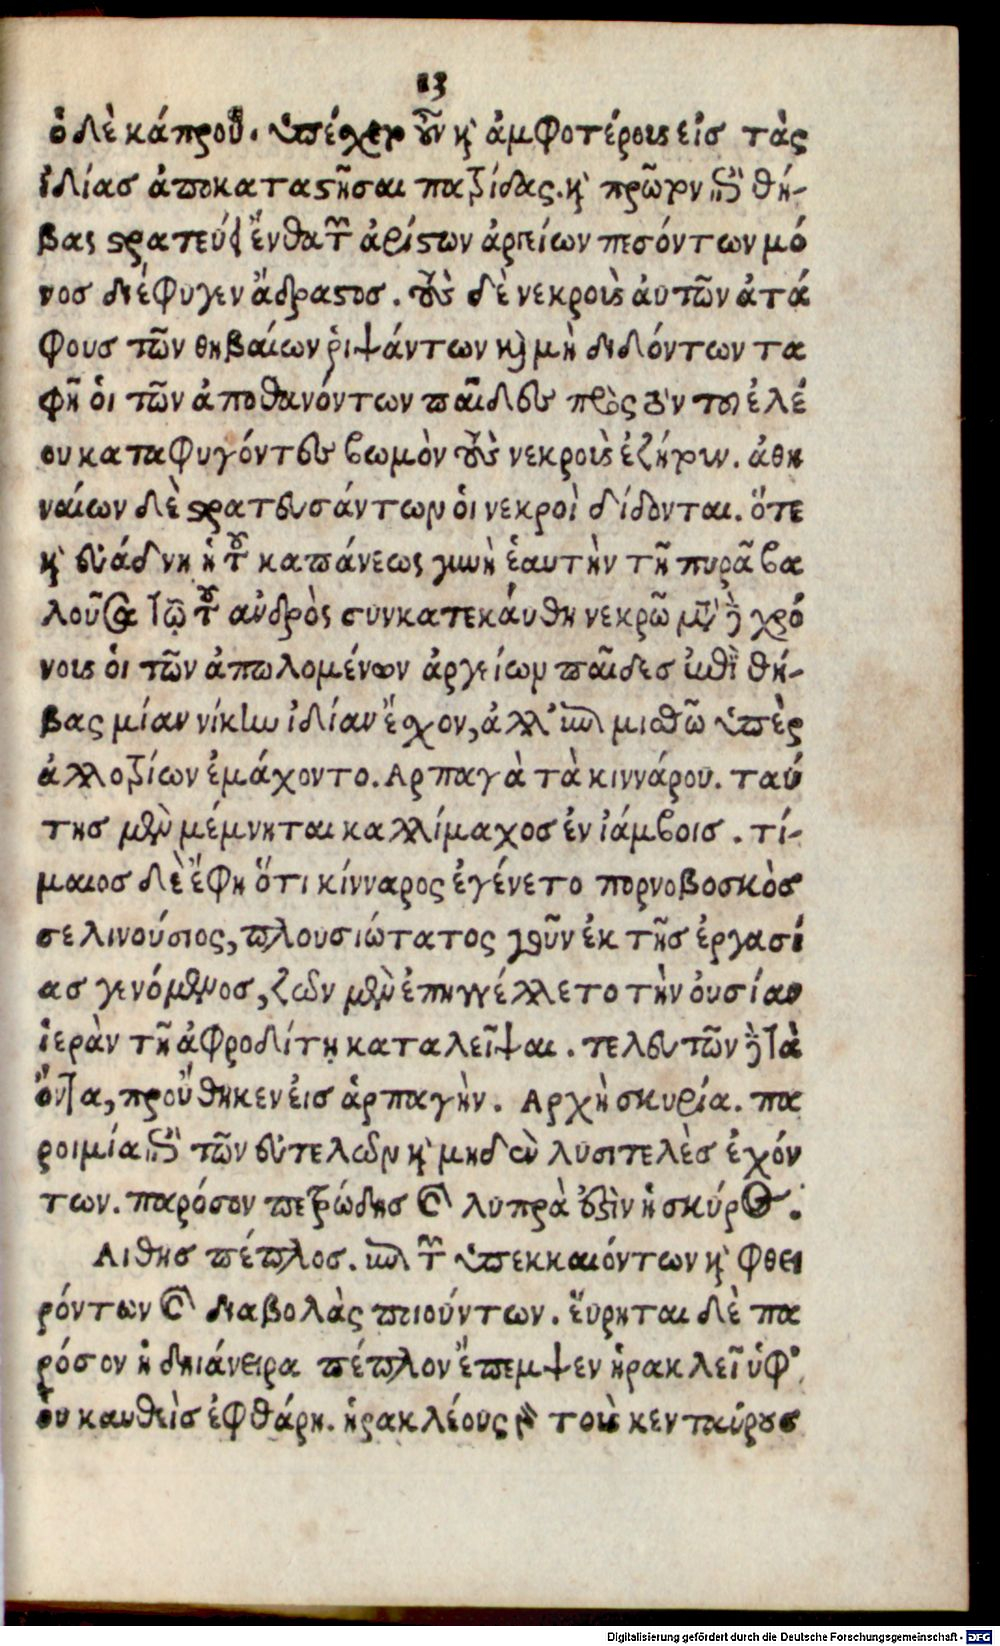 13
ὁ δὲ κάπρου. ὑπέσχετο οὖν καὶ ἀμφοτέροις εἰς τὰς
ἰδίας ἀποκαταστῆσαι πατρίδας. καὶ πρῶτον ἐπὶ θή-
βας στρατεύει ἔνθα τῶν ἀρίστων ἀργείων πεσόντων μό
νος διέφυγεν ἄδραστος. τοὺς δὲ νεκροὺς αὐτῶν ἀτά
φους τῶν θηβαίων ῥιψάντων καὶ μὴ διδόντων τα
φῆ οἱ τῶν ἀποθανόντων παῖδες πρὸς τὸν τοῦ ἐλέ
ου καταφυγόντες βωμὸν τοὺς νεκροὺς ἐζήτουν. ἀθη
ναίων δὲ στρατευσάντων οἱ νεκροὶ δίδονται. ὅτε
καὶ εὐάδνη ἡ τοῦ καπάνεως γυνὴ ἑαυτὴν τῆ πυρᾶ βα
λοῦσα τῶ τοῦ ἀνδρὸς συνκατεκάυθη νεκρῶ μετὰ χρό
νους οἱ τῶν ἀπωλομένων ἀργείων παῖδες ἐπὶ θή-
βας μίαν νίκην ἰδίαν ἔσχον, ἀλλ' ἐπὶ μισθῶ ὑπὲρ
ἀλλοτρίων ἐμάχοντο. Αρπαγὰ τὰ κιννάρου. ταύ
της μὲν μέμνηται καλλίμαχος ἐν ἰάμβοις. τί-
μαιος δὲ ἔφη ὅτι κίνναρος ἐγένετο πορνοβοσκὸς
σελινούσιος, πλουσιώτατος γοῦν ἐκ τῆς ἐργασί
ας γενόμενος, ζῶν μὲν ἐπηγγέλλετο τὴν οὐσίαν
ἱερὰν τῆ ἀφροδίτη καταλεῖψαι. τελευτῶν τὰ
ὄντα, προὔθηκεν εἰς ἁρπαγὴν. Αρχὴ σκυρία. πα
ροιμία ἐπὶ τῶν εὐτελῶν καὶ μηδὲν λυσιτελὲς ἐχόν
των. παρόσον πετρώδης καὶ λυπρὰ ἐστὶν ἡ σκύρος.
Αιθης πέπλος. ἐπὶ τῶν ὑπεκκαιόντων καὶ φθει
ρόντων καὶ διαβολὰς ποιούντων. ἔυρηται δὲ πα
ρόσον ἡ δηιάνειρα πέπλον ἔπεμψεν ἡρακλεῖ ὑφ'
οὗ καυθεὶς ἐφθάρη. ἡρακλέους γὰρ τοὺς κενταύρους
Digitalisierung gefördert durch die Deutsche Forschungsgemeinschaft - DFG